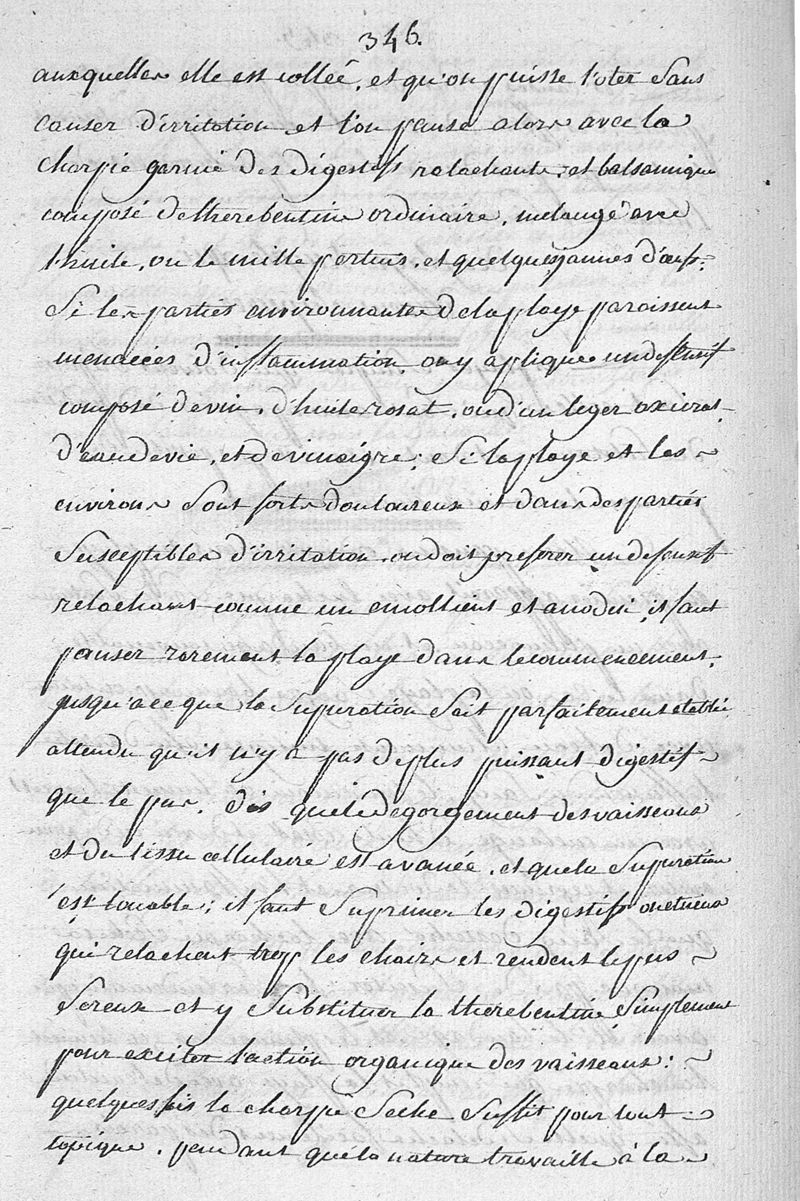 346.
auxquelles elle est collée, et qu'on puisse l'oter sans
causer d'irritation et l'on panse alors avec la
charpie garnie des digestifs relachants, et balsamique
composé de therebentine ordinaire, melangé avec
l'huile, ou le mille pertuis, et quelques jaunes d'œufs.
Si les parties environnantes de la playe paroissent
menacées d'inflammation on y aplique un defensif
composé de vin, d'huile rosat, ou d'un leger oxicrat
d'eau de vie, et de vinaigre; Si la playe et les
environs sont forts douloureux et dans des parties
susceptibles d'irritation, on doit preferer un defensif
relachant comme un emollient et anodin, il faut
panser rarement la playe dans le commencement,
jusqu'a ce que la supuration soit parfaitement etablie
attendu qu'il n'y a pas de plus puissant digestif
que le pus. dès que le degorgement des vaisseaux
et du tissu cellulaire est avancé, et que la supuration
est louable; il faut suprimer les digestifs onctueux
qui relachent trop les chairs et rendent le pus
sereux et y substituer la therebentine simplement
pour exciter l'action organique des vaisseaux:
quelques fois la charpie seche suffit pour tout
topique, pendant que la nature travaille à la